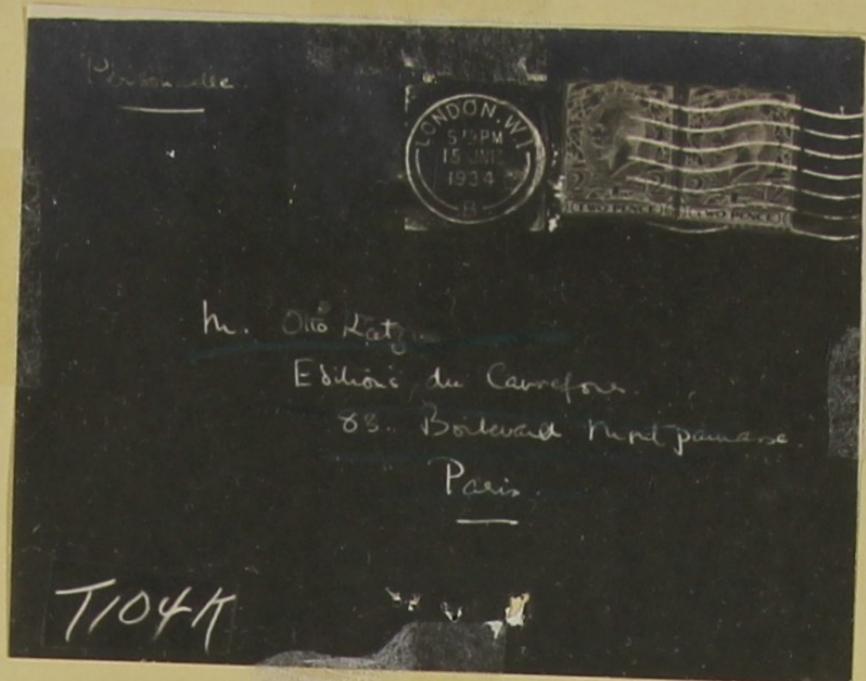 Personnelle
LONDON. W.1
5 PM
15 JAN
1934
B
TWO PENCE TWO PENCE
M. Otto Katz
Editions du Carrefour.
83. Boulevard Montparnasse.
Paris.
T104K